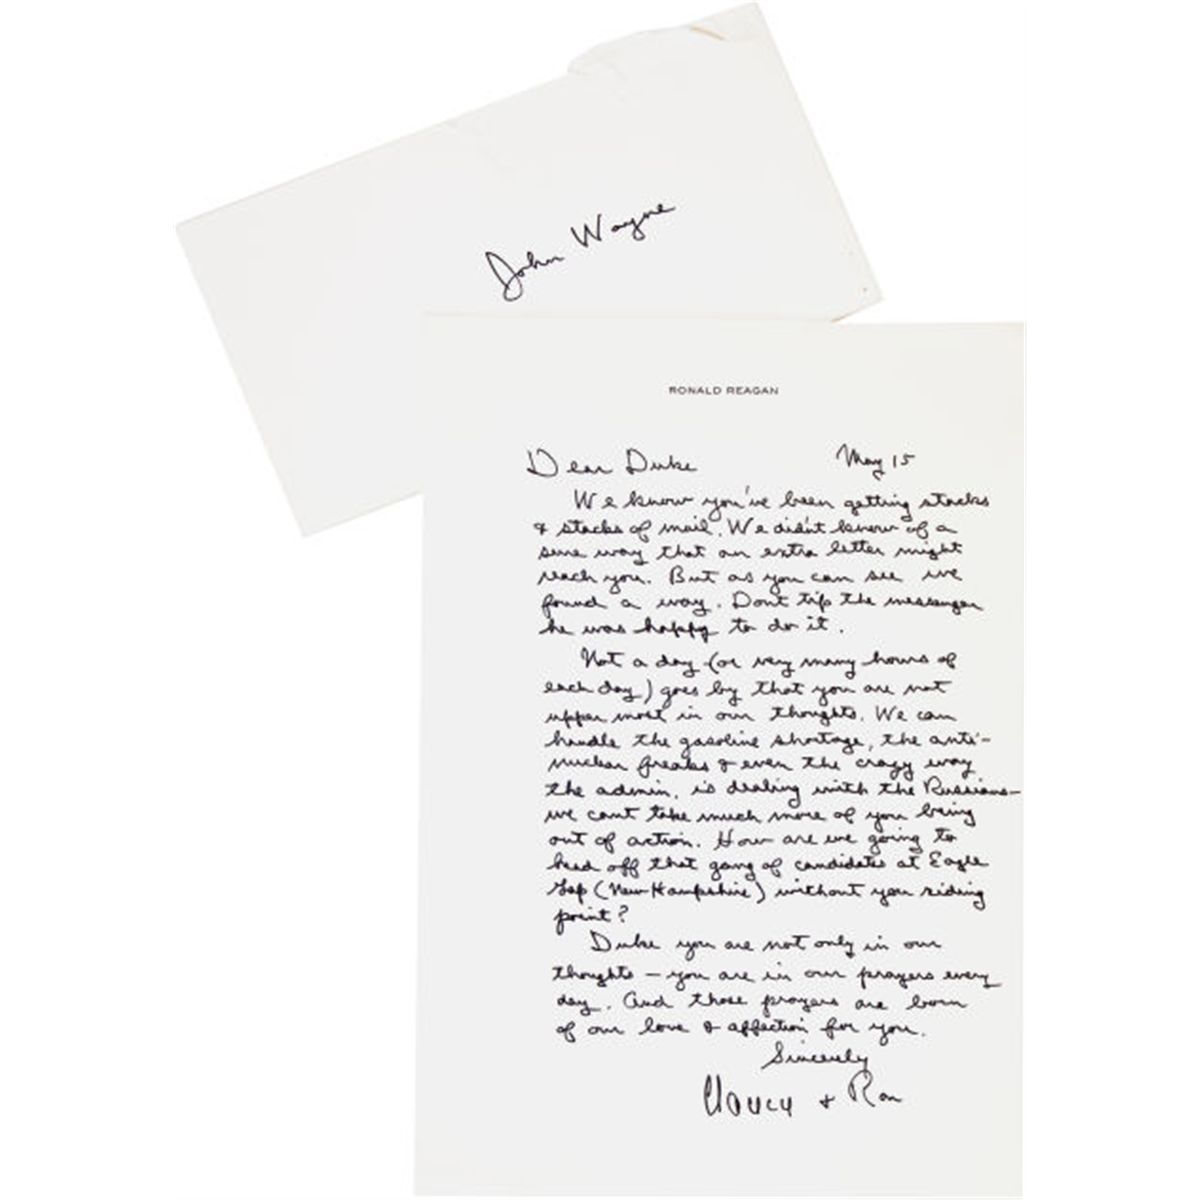 John Wayne
RONALD REAGAN
Dear Duke May 15
We know you've been getting stacks
& stacks of mail. We didn't know of a
sure way that an extra letter might
reach you. But as you can see we
found a way. Dont tip the messenger
he was happy to do it.
Not a day (or very many hours of
each day) goes by that you are not
upper most in our thoughts. We can
handle the gasoline shortage, the anti-
nuclear freaks & even the crazy way
the admin. is dealing with the Russians—
we cant take much more of you being
out of action. How are we going to
head off that gang of candidates at Eagle
Gap (New Hampshire) without you riding
point?
Duke you are not only in our
thoughts — you are in our prayers every
day. And those prayers are born
of our love & affection for you.
Sincerely
Nancy & Ron